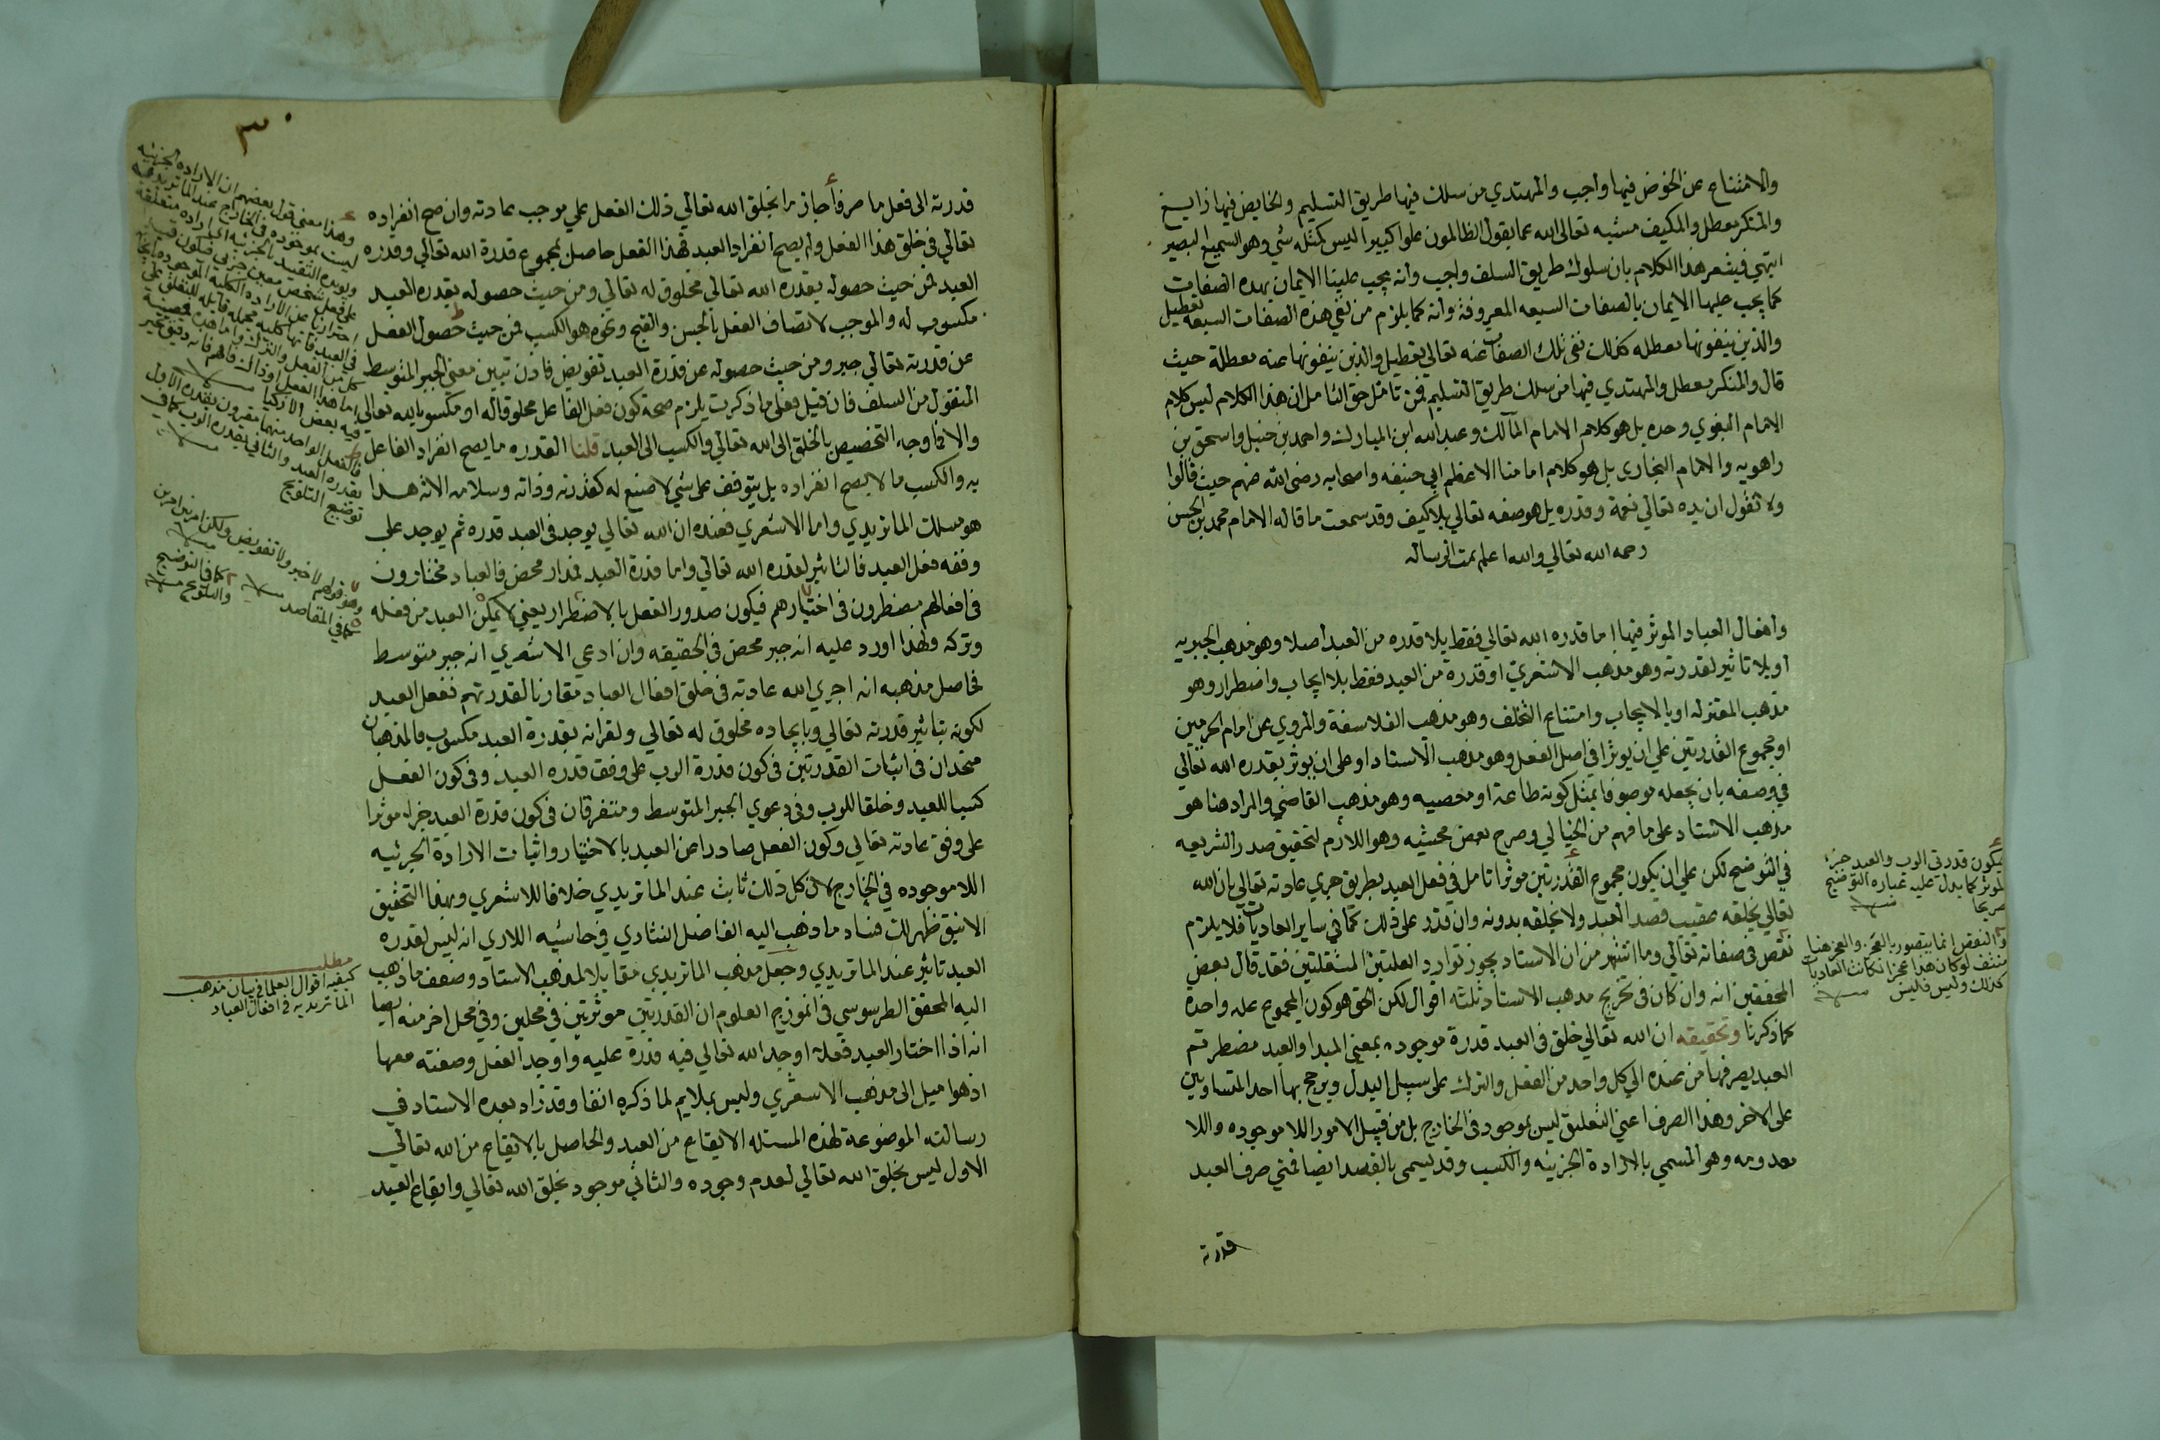 والامتناع عن الخوض فيها واجب والمهتدي من سلك فيها طريق التسليم والخايض فيها زايغ
والمنكر معطل والمكيف مشبه تعالى الله عما يقول الظالمون علوا كبيرا ليس كمثله شي وهو السميع البصير
انتهي فيشعر هذا الكلام بان سلوك طريق السلف واجب وانه يجب علينا الايمان بهذه الصفات
كما يجب علينا الايمان بالصفات السبعه المعروفة وانه كما يلزم من نفي هذه الصفات السبعه تعطيل
والذين ينفونها معطله كذلك نفي تلك الصفات عنه تعالي تعطيل والذين ينفونها عنه معطلة حيث
قال والمنكر معطل والمهتدي فيها من سلك طريق التسليم فمن تامل حق التامل ان هذا الكلام ليس كلام
الامام البغوي وحده بل هو كلام الامام المالك وعبد الله ابن المبارك واحمد بن حنبل واسحق بن
راهويه والامام البخاري بل هو كلام امامنا الاعظم ابي حنيفه واصحابه رضي الله عنهم حيث قالوا
ولا نقول ان يده تعالي نعمة وقدره بل هو صفه تعالي بلا كيف وقد سمعت ما قاله الامام محمد بن الحسن
رحمه الله تعالي والله اعلم تمت الرساله
وافعال العباد الموثر فيها اما قدره الله تعالي فقط بلا قدره من العبد اصلا وهو مذهب الجبريه
او بلا تاثير لقدرته وهو مذهب الاشعري او قدرة من العبد فقط بلا ايجاب واضطرار وهو
مذهب المعتزله او بالايجاب وامتناع التخلف وهو مذهب الفلاسفة والمروي عن امام الحرمين
او مجموع القدرتين علي ان يوثرا في اصل الفعل وهو مذهب الاستاد او على ان يوثر بقدره الله تعالي
في وصفه بان يجعله موصوفا بمثل كونه طاعة او معصيه وهو مذهب القاضي والمراد هنا هو
مذهب الاستاد على ما فهم من الخيالي وصرح بعض محشيه وهو اللازم لتحقيق صدر الشريعه
في التوضح لكن علي ان يكون مجموع القدرتين موثرا تامل في فعل العبد بطريق جري عادته تعالي بان الله
تعالي يخلقه عقيب قصد العبد ولا يخلقه بدونه وان قدر على ذلك كما في ساير العاديات فلا يلزم
نقص في صفاته تعالي وما اشتهر من ان الاستاد يجوز توارد العلتين المستقلتين فقد قال بعض
المحققين انه وان كان في تخريج مذهب الاستاد ثلثة اقوال لكن الحق هو كون المجموع عله واحدة
كما ذكرنا وتحقيقه ان الله تعالي خلق في العبد قدرة موجوده بمعني المبدا والعبد مضطر ثم
العبد يصرفها من عنده الي كل واحد من الفعل والترك على سبيل البدل ويرجح بها احد المتساويين
على الاخر وهذا الصرف اعني التعلق ليس بموجود في الخارج بل من قبيل الامور اللا موجوده واللا
معدومه وهو المسمي بالارادة الجزئيه والكسب وقد يسمى بالقصد ايضا فمتي صرف العبد
قدرته
يكون قدرتي الرب والعبد جزء
لموثر كما يدل عليه عباره التوضيح
صريحا
والنقص انما يتصور بالعجز والعجز هنا
منتف لو كان هذا عجزا لكانت العاديات
كذلك وليس فليس
٣٠
قدرته الى فعل ما صرفا جازما يخلق الله تعالي ذلك الفعل علي موجب عادته وان صح انفراده
تعالي في خلق هذا الفعل ولم يصح انفراد العبد فهذا الفعل حاصل بمجموع قدرة الله تعالي وقدره
العبد لمن حيث حصوله بقدره الله تعالي مخلوق له تعالي ومن حيث حصوله بقدره العبد
مكسوب له والموجب لاتصاف الفعل بالحسن والقبح ونحوه هو الكسب فمن حيث حصول الفعل
عن قدرته تعالي جبر ومن حيث حصوله عن قدرة العبد تفويض فاذن تبين معني الجبر المتوسط
المنقول من السلف فان قيل فعلي ما ذكرت يلزم صحة كون فعل الفاعل مخلوقا له او مكسوبا لله تعالي
والا فما وجه التخصيص بالخلق الى الله تعالي والكسب الى العبد قلنا القدره ما يصح انفراد الفاعل
به والكسب ما لا يصح انفراده بل يتوقف على شي لا صنع له كقدرته وذاته وسلامه الاته هذا
هو مسلك الماتريدي واما الاشعري فعنده ان الله تعالي يوجد في العبد قدره ثم يوجد على
وفقه فعل العبد فالتاثير لقدره الله تعالي واما قدرة العبد فمدار محض فالعباد مختارون
في افعالهم مضطرون في اختيارهم فيكون صدور الفعل بالاضطرار يعني لا يمكن العبد من فعله
وتركه ولهذا اورد عليه انه جبر محض في الحقيقه وان ادعي الاشعري انه جبر متوسط
فحاصل مذهبه انه اجري الله عادته في خلق افعال العباد مقارنا لقدرتهم ففعل العبد
لكونه بتاثير قدرته تعالي وبايجاده مخلوق له تعالي ولقرانه بقدرة العبد مكسوب فالمذهبان
متحدان في اثبات القدرتين في كون قدرة الرب على وفق قدره العبد وفي كون الفعل
كسبا للعبد وخلقا للرب وفي دعوي الجبر المتوسط ومتفرقان في كون قدرة العبد جزاء موثرا
على وفق عادته تعالي وكون الفعل صادرا من العبد بالاختيار واثبات الارادة الجزئيه
اللا موجوده في الخارج لان كل ذلك ثابت عند الماتريدي خلافا للاشعري وبهذا التحقيق
الانيق ظهر لك فساد ما ذهب اليه الفاضل النثاري في حاشيه اللاري انه ليس لقدره
العبد تاثير عند الماتريدي وجعل مذهب الماتريدي مقابلا لمذهب الاستاد وضعف ما ذهب
اليه المحقق الطرسوسي في انموزج العلوم ان القدرتين موثرتين في محلين وفي محل اخر منه ايضا
انه اذا اختار العبد فعلا اوجد الله تعالي فيه قدرة عليه واوجد الفعل وصفته معها
اذ هو اميل الى مذهب الاشعري وليس بملايم لما ذكره انفا وقد زاد بعده الاستاد في
رسالته الموضوعة لهذه المسئله الايقاع من العبد والحاصل بالايقاع من الله تعالي
الاول ليس بخلق الله تعالي لعدم وجوده والثاني موجود بخلق الله تعالي وايقاع العبد
وهذا معني قول بعضهم ان الاراده الجزئيه
ليست بموجوده في الخارج عند الماتريديه
فالفعل الواحد
بقدره العبد والثاني بقدره الرب كما في
توضيح التلويح
وهو قولهم لا جبر ولا تفويض ولكن امر بين امرين
كما في المقاصد
كما في التوضيح
والتلويح
مطلب
كيفيه اقوال العلما في بيان مذهب
الماتريديه في افعال العباد